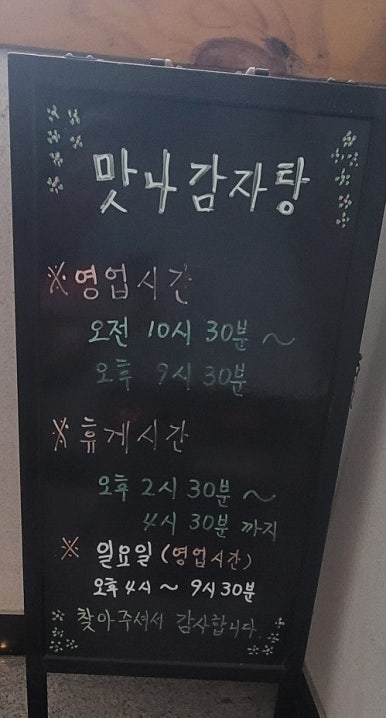 맛나감자탕
※영업시간
오전 10시 30분 ~
오후 9시 30분
※휴게시간
오후 2시 30분 ~
4시 30분 까지
※ 일요일 (영업시간)
오후 4시 ~ 9시 30분
찾아주셔서 감사합니다.